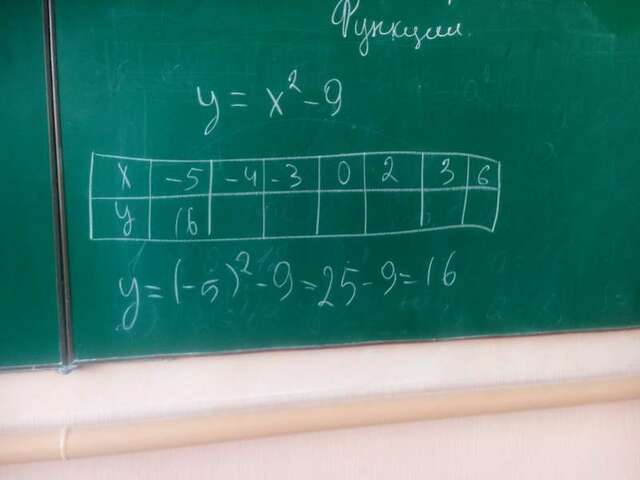 Функции.
y = x² - 9
x -5 -4 -3 0 2 3 6
y 16
y = (-5)² - 9 = 25 - 9 = 16